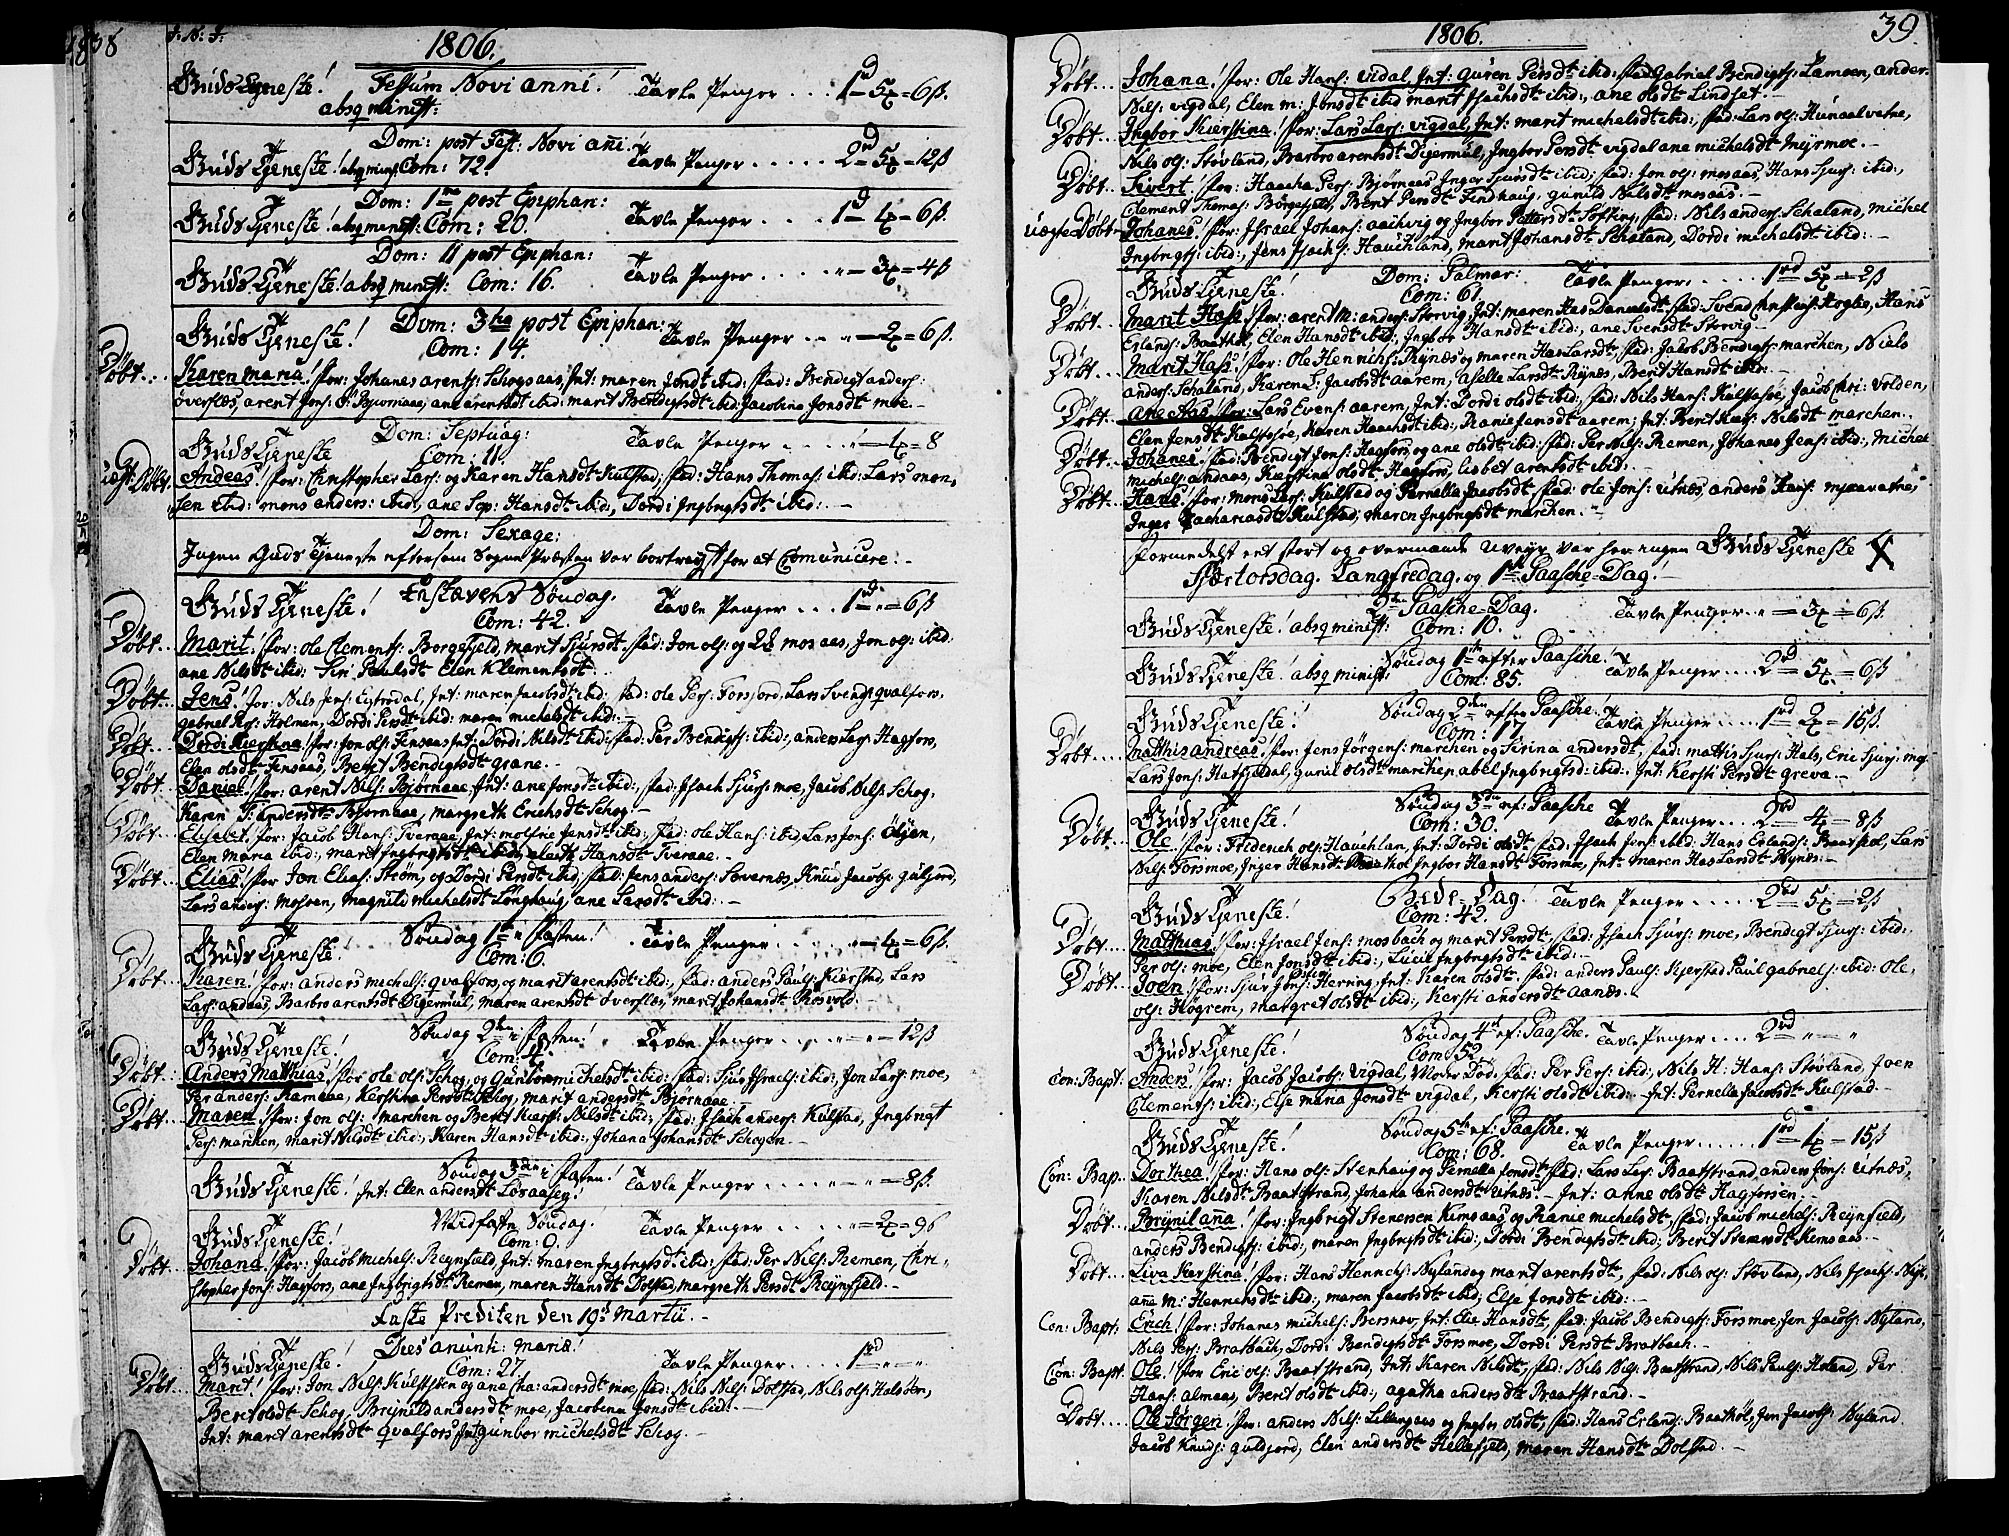 38
J. N. J.
1806.
Guds Tjeneste! Festum Novi anni! Tavle Penger . . . 1rd 5x = 6ß.
absq minist:
Dom: post Fest: Novi ani!
Guds Tjeneste! absq minist: Com: 72. Tavle Penger . . . . . 2rd 5x = 12ß
Dom: 1ma post Epiphan:
Guds Tjeneste! absq minist: Com: 20. Tavle Penger . . . . 1rd 4x = 6ß.
Dom: II post Epiphan:
Guds Tjeneste! absq minist: Com: 16. Tavle Penger . . . . " 3x = 4ß
Guds Tjeneste! Dom: 3tia post Epiphan: Tavle Penger . . " 2x = 6ß.
Com: 14.
Døbt... Karen maria! For: Johanes arents: Schogsaas, Int: maren Jonsdt ibid: Fad: Bendigt anders:
överfles, arent Jons: Ö: Bjwrnaae, ane arentsdt ibid: marit Bendigtsdt ibid: Jacobina Jonsdt moe
Dom: Septuag:
Guds Tjeneste Com: 11. Tavle Penger . . . . " 4x = 8
uægt: Døbt. Andeas! For: Christopher Lars: og Karen Hansdt Kulstad, Fad: Hans Thomas: ibid: Lars mon,
sen ibid: mons anders: ibid:, ane Sop: Hansdt ibid:, Dordi Ingbrigtsdt ibid:
Dom: Sexage:
Ingen Guds Tjeneste eftersom Sogne Præsten var bortreyst for at Comunicere.
Guds Tjeneste! Fastelavens Søndag. Tavle Penger . . . 1rd " = 6ß
Com: 42.
Døbt... Marit! For: ole Clements: Borgefjeld, marit Sjursdt. Fad: Jon ols: og mosaas, Jon ols: ibid:
ane Nilsdt ibid: Sin: Paulsdt Elen Klementsdt
Døbt... Jens! For: Nils Jens: Eytrodal, Int: maren Jacobsdt ibid: Fad: ole Pers: Forsjord, Lars Svends: qvalfors,
gabriel Pers: Holmen, Dordi Persdt ibid: maren michelsdt ibid:
Døbt... Dordi Kierstina! For: Jon ols: Finsaas Int: Dordi Nilsdt ibid: Fad: Per Bendigts: ibid:, anders Lars: Hagfors,
Elen olsdt Finsaas, Beret Bendigtsdt grane.
Døbt Daniel! For: arent Nils: Bjørnaae, Int: ane Jonsdt ibid:, Fad: Isach Sjurs: moe, Jacob Nils: Schog,
Karen J: andersdt Bjornaae, margreth Erichsdt Schog.
Døbt... Elisabet. For: Jacob Hans: Tveraae, Int: molfrie Jensdt ibid:, Fad: ole Hans: ibid, Lars Jons: Øeljen,
Elen Maria ibid:, marit Ingbrigtsdt ibid, aleth Hansdt Tveraae.
Døbt... Elias! For Jon Elias: Strøm, og Dordi Persdt ibid, Fad: Jens anders: Sovernæs, Knud Jacobs: gulfjord,
Lars anders: mosren, Magnild michelsdt Longhaug, ane Larsdt ibid:
Guds Tjeneste! Søndag 1ste i Fasten! Tavle Penger . . . . " 4x = 6ß.
Com: 6.
Døbt... Karen! For: anders michels: qvalfors, og marit arentsdt ibid:, Fad: anders Pauls: Kierstad, Lars
Lars: andaas, Barbro arentsdt Digermul, maren arentsdt överfles, marit Johansdt Rosvold.
Guds Tjeneste! Søndag 2den i Fasten! Tavle Penger . . . . " " = 12ß
Com: 4.
Døbt... Anders Matthias! For ole ols: Schog, og Gunbor michelsdt ibid: Fad: Sjur Israels: ibid:, Jon Lars: moe,
Per anders: Ramaae, Kerstina Persdt Schog, marit andersdt Bjornaae.
Døbt... Maren! For: Jon ols: marchen og Beret Kierst: Nilsdt ibid:, Fad: Isach anders: Kulstad, Ingbrigt
Pers: marchen, marit Nilsdt ibid:, Karen Hansdt ibid:, Johana Johansdt Schogen.
Guds Tjeneste! Søndag 3die i Fasten! Tavle Penger . . . . " " = 8ß.
Int: Elen andersdt Loraasen!
Guds Tjeneste! Midfaste Søndag! Tavle Penger . . . . " 2x = 9ß
Com: 9.
Døbt... Johana! For: Jacob Michels: Reynfield, Int: maren Ingbrigtsdt ibid: Fad: Per Nils: Remen, Chri,
stopher Jons: Hagfors, ane Ingbrigtsdt Remen, maren Hansdt Dolstad, margreth Persdt Reynfjeld.
Faste Prediken den 19de Martii.
Guds Tjeneste! Dies anunti: mariæ! Tavle Penger . . . . 1rd " = "
Com: 27.
Døbt... Marit! For: Jon Nils: Kulstsøen og ane Cha: andersdt moe, Fad: Nils Nils: Dolstad, Nils ols: Halsøen,
Beret olsdt Schog, Brynild andersdt moe, Jacobina Jonsdt ibid:
Int: marit arentsdt qvalfors Int: Gunbor michelsdt Schog.
1806.
39.
Døbt... Johana! For: Ole Hans: vigdal, Int: guren Persdt ibid: Fad: Gabriel Bendigts: Lamoen, anders
Nils: vigdal, Elen m: Jonsdt ibid marit Isachsdt ibid:, ane olsdt Lindset.
Døbt... Ingbor Kierstina! For: Lars Lars: vigdal, Int: marit michelsdt ibid:, Fad: Lars ols: Hunaalvatne,
Nils ols: Støvland, Barbro arentsdt Digermul, Ingbor Persdt vigdal ane michelsdt Myrmoe.
Døbt... Sivert! For: Haacha Pers: Bjørnaas Inger Sjursdt ibid; Fad: Jon ols: mosaas, Hans Sjurs: ibid:,
Clement Thomas: Borgefjeld, Berit Persdt Findhaug, gunild Nilsdt mosaas.
uægte Døbt. Johanes! For: Israel Johans: aachvig og Ingbor Pettersdt Softing, Fad: Nils anders: Schaland, michel
Ingbrigts: ibid:, Jens Isachs: Hauchland, marit Johansdt Schaland, Dordi michelsdt ibid:
Guds Tjeneste! Dom: Palmar: Tavle Penger. . . . 1rd 5x = 2ß
Com: 61.
Døbt... Marit Hass! For: arent M: anders: Storvig, Int: maren Has Danielsdt Fad: Svend Christens: Hoglie, Hans
Erlands: Baathol, Elen Hansdt ibid:, Ingbor Hansdt ibid:, ane Svensdt Storvig
Døbt... Marit Hass! For: Ole Henrichs: Rynæs og maren Has Larsdt, Fad: Jacob Bendigts: marchen, Niels
anders: Schaland, Karen L: Jacobsdt aarem, aselle Larsdt Rynes, Berit Hansdt ibid:
Døbt... Ane Has! For: Lars Evens: aarem, Int: Dordi olsdt ibid:, Fad: Nils Hans: Kulstadsøe, Jacob Chri: Volden,
Elen Jensdt Kulstsjøe, Karen Haachsdt ibid:, Ranie Jensdt aarem; Int: Beret Kast: Nilsdt marchen.
Døbt... Johanes. Fad: Bendigt Jons: Hagfors, og ane olsdt ibid: Fad: Per Nils: Remen, Johanes Jens: ibid:, Michel
Michels: andaas, Kierstina olsdt Hagfors, lisbet arentsdt ibid:
Døbt... Hans! For: Mons Lars: Kulstad og Pernella Jacobsdt Fad: ole Jons: utnæs, anders Hans: mjaavatne,
Inger Zachariasdt Kulstad, maren Ingbrigtsdt marchen.
Formedelst ett stort og overmaade Uveyr var her ingen Guds Tjeneste X
Skjærtorsdag. Langfredag. og 1ste Paasche-Dag!
2den Paasche-Dag. Tavle Penger. " 3x = 6ß
Guds Tjeneste! absq minist: Com: 10.
Søndag 1ste efter Paasche!
Guds Tjeneste! absq minist: Com: 85. Tavle Penger . . . 2rd 5x = 6ß
Guds Tjeneste! Søndag 2den efter Paasche! Tavle Penger . . . . 1rd 2x = 15ß.
Com: 17
Døbt... Matthis andreas! For: Jens Jørgens: marchen og Sirina andersdt, Fad: mattis Sjurs: Hals, Eric Sjurs: moe,
Lars Jons: Hatfjeldal, guruil olsdt marchen, abel Ingbrigtsd: ibid:. Int: Kersti Persdt greva.
Guds Tjeneste! Søndag 3die ef: Paasche Tavle Penger . . . 2rd 4x = 8ß
Com: 30.
Døbt... Ole! For: Friderich ols: Hauchlan, Int: Dordi olsdt Fad: Isach Jons: ibid: Hans Erlands: Baathol, Lars
Nils: Forsmoe, Inger Hansdt Baathol Ingbor Hansdt Forsmoe, Int: Maren Has Larsdt Rynæs.
Guds Tjeneste! Bede-Dag! Tavle Penger . . . . . 2rd 5x = 2ß
Com: 42.
Døbt... Matthias! For: Israel Jens: mosbach og marit Persdt, Fad: Isach Sjurs: moe, Bendigt Sjurs: ibid:,
Per ols: moe, Elen Jonsdt ibid:, Lucie Ingbrigtsdt ibid:
Døbt... Joen! For: Sjur Jons: Herring, Int: Karen olsdt. Fad: anders Pauls: Kjerstad Paul gabriels: ibid: Ole,
ols: Høgrem, margret olsdt ibid:, Kersti andersdt aanæs.
Guds Tjeneste! Søndag 4de ef: Paasche. Tavle Penger . . . . 2rd " "
Com: 52.
Con: Bapt. Anders! For: Jacob Jacobs: Vigdal, Moder Død. Fad: Per Pers: ibid:, Nils H: Hans: Støvland, Joen
Clements: ibid:, Else maria Jonsdt vigdal, Kersti olsdt ibid: Int: Pernella Jacobsdt Kulstad.
Guds Tjeneste! Søndag 5te ef: Paasche. Tavle Penger . . . . . 1rd 1x = 15ß
Com: 68.
Con: Bap. Dorthea! For: Hans ols: Stenhaug og Pernella Jonsdt Fad: Lars Lars: Baatstrand anders Jons: utnæs,
Karen Nilsdt Baatstrand, Johana andersdt utnæs. Int: anne olsdt Hagforsen.
Døbt... Brynil aña! For: Ingbrigt Stenersen Kimsaas og Ranie michelsdt, Fad: Jacob michels: Reynfield,
anders Bendigts: ibid:, maren Ingbrigtsdt ibid:, Dordi Bendigtsdt ibid; Berit Stenersdt Kemsaas.
Døbt... Liva Kerstina! For: Hans Henrichs: Nylandog marit arentsdt, Fad: Nils ols: Støvland, Nils Isachs:
añe M: Henrichsdt ibid:, maren Jacobsdt ibid; Else Jonsdt ibid:
Con: Bapt: Erich! For: Johanes michels: Bersnov, Int: Elie Hansdt, Fad: Jacob Bendigts: Forsmoe, Jon Jacobs: Nyland,
Nils Pers: Bratbach, Dordi Bendigtsdt Forsmoe, Dordi Persdt Bratbach.
Con: Bapt. Ole! For Eric ols: Baatstrand, Int: Karen Nilsdt, Fad: Nils Nils: Baatstrand, Nils Pauls: Holand, Per
Hans: almaas, Beret olsdt ibid:, agatha andersdt Baatstrand.
Døbt... Ole Jørgen! For: anders Nils: Lillengaas og Inger olsdt, Fad: Hans Erlands: Baathol, Jon Jacobs: Nyland
Jacob Knuds: guldjord, Elen andersdt Hellesfjeld, maren Hansdt Dolstad.